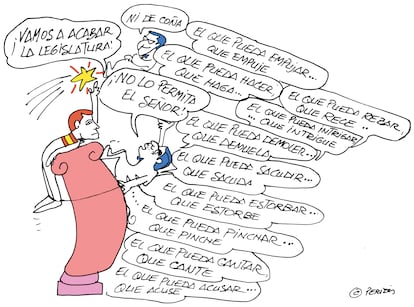 ¡VAMOS A ACABAR
LA LEGISLATURA!
NI DE COÑA
EL QUE PUEDA EMPUJAR...
QUE EMPUJE
EL QUE PUEDA HACER,
QUE HAGA...
EL QUE PUEDA REZAR,
QUE RECE...
EL QUE PUEDA INTRIGAR,
QUE INTRIGUE
¡NO LO PERMITA
EL SEÑOR!
EL QUE PUEDA DEMOLER...
QUE DEMUELA
EL QUE PUEDA SACUDIR...
QUE SACUDA
EL QUE PUEDA ESTORBAR...
QUE ESTORBE
EL QUE PUEDA PINCHAR...
QUE PINCHE
EL QUE PUEDA CANTAR,
QUE CANTE
EL QUE PUEDA ACUSAR...
QUE ACUSE
© PERIDIS